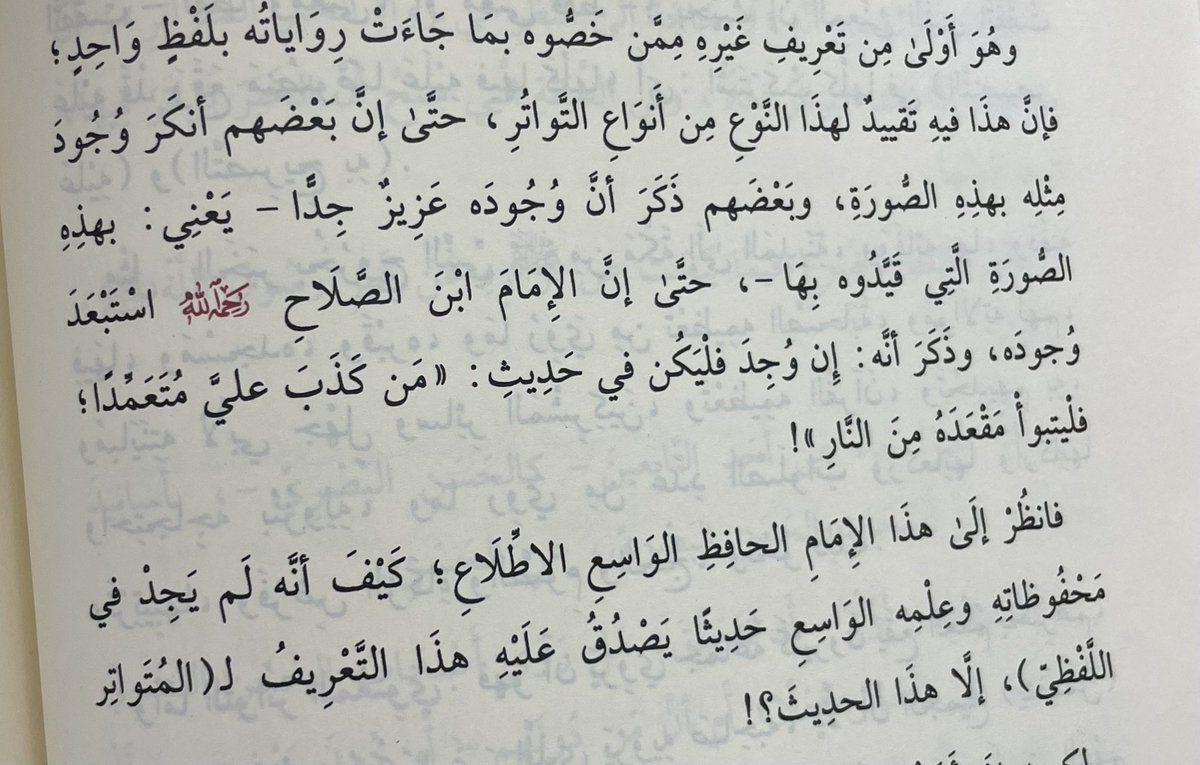 وهُوَ أَوْلَىٰ مِن تَعْرِيفِ غَيْرِهِ مِمَّن خَصُّوه بمَا جَاءَتْ رِوَاياتُه بلَفْظٍ وَاحِدٍ؛
فإنَّ هذَا فيهِ تَقييدٌ لهذَا النَّوْعِ مِن أَنوَاعِ التَّواتُرِ، حتَّىٰ إنَّ بَعْضَهم أنكَرَ وُجُودَ
مِثْلِه بهذِهِ الصُّورَةِ، وبَعْضَهم ذَكَرَ أنَّ وُجُودَه عَزِيزٌ جِدًّا - يَعْنِي: بهذِهِ
الصُّورَةِ الَّتِي قَيَّدُوه بِهَا -، حتَّىٰ إنَّ الإمَامَ ابْنَ الصَّلَاحِ رَحِمَهُ اللهُ اسْتَبْعَدَ
وُجُودَه، وذَكَرَ أنَّه: إِن وُجِدَ فلْيَكُن في حَدِيثِ: «مَن كَذَبَ عليَّ مُتَعَمِّدًا؛
فلْيتبوأْ مَقْعَدَهُ مِنَ النَّارِ»!
فانظُرْ إلَىٰ هذَا الإمَامِ الحافِظِ الوَاسِعِ الاطِّلَاعِ؛ كَيْفَ أنَّه لَم يَجِدْ في
مَحْفُوظاتِهِ وعِلْمِه الوَاسِعِ حَدِيثًا يَصْدُقُ عَلَيْهِ هذَا التَّعْرِيفُ لـ(المُتَواتِر
اللَّفْظِيّ)، إلَّا هذَا الحدِيثَ؟!